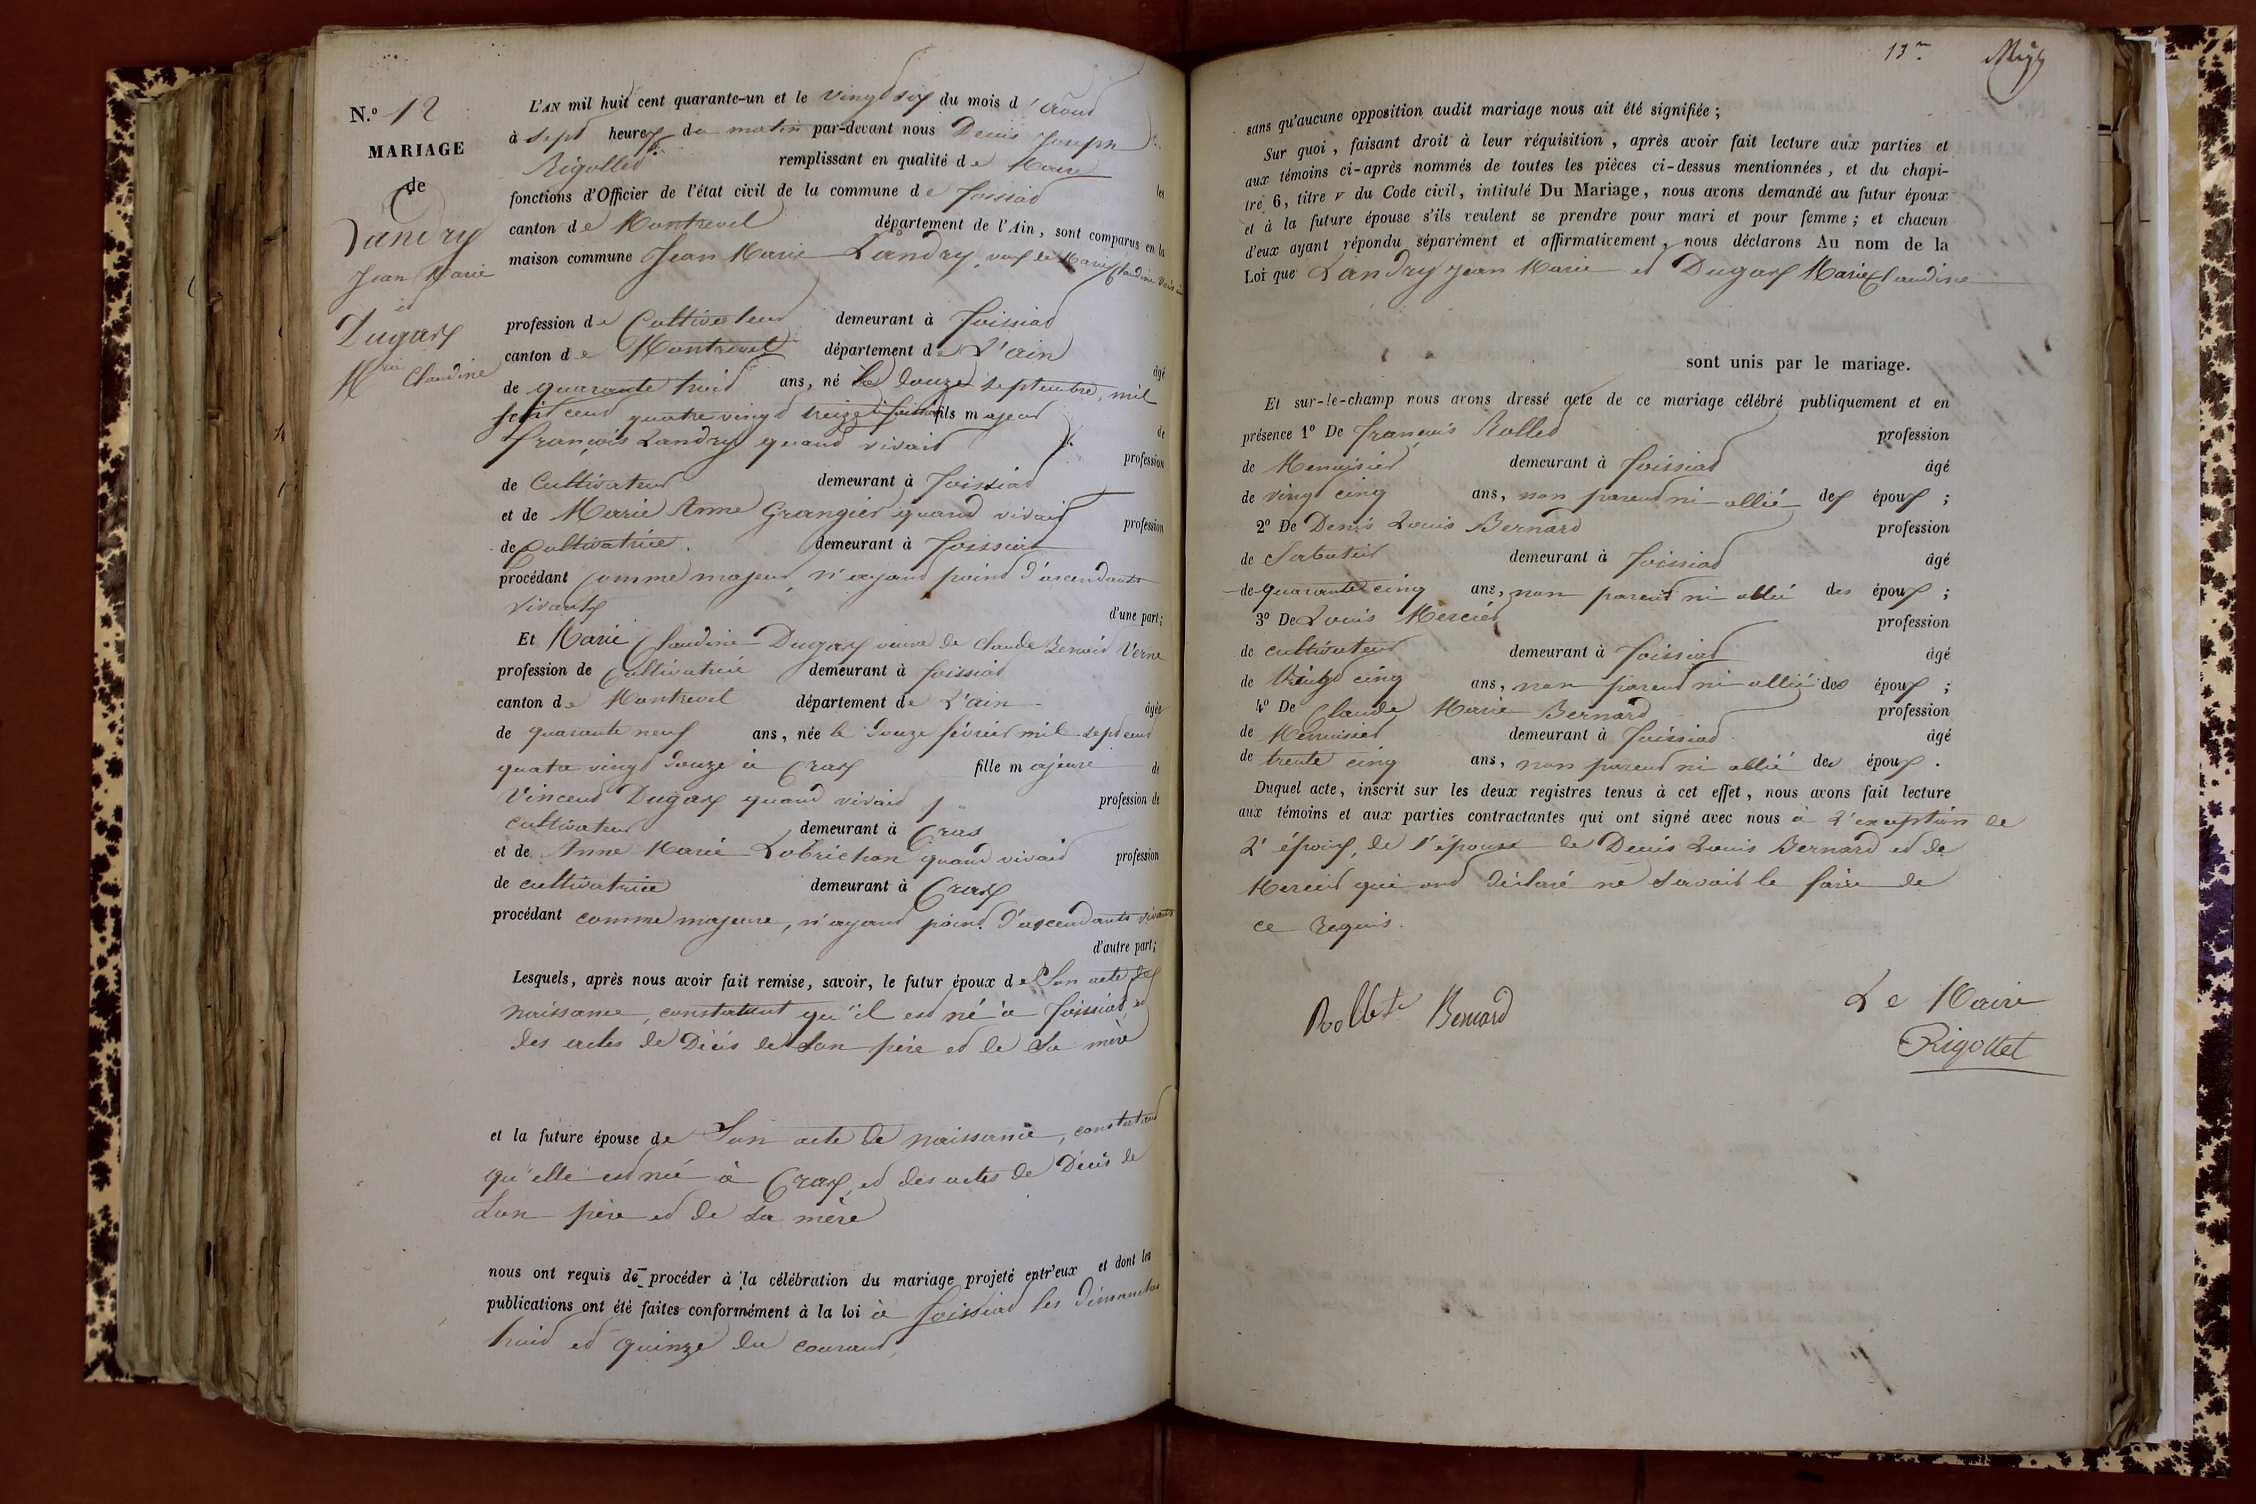 N.o 12
MARIAGE
de
Landry
Jean Marie
et
Dugas
Mie Claudine
L'AN mil huit cent quarante-un et le vingt six du mois d'août
à sept heures du matin par-devant nous Denis Joseph
Rigollet remplissant en qualité de Maire les
fonctions d'Officier de l'état civil de la commune de foissiat
canton de Montrevel département de l'Ain, sont comparus en la
maison commune Jean Marie Landry, veuf de Marie Claudine
profession de Cultivateur demeurant à foissiat
canton de Montrevel département de L'ain âgé
de quarante huit ans, né le douze septembre, mil
sept cent quatre vingt treize à foissiat fils majeur de
françois Landry quand vivait profession
de Cultivateur demeurant à foissiat
et de Marie Anne Grangier quand vivait profession
de Cultivatrice. demeurant à foissiat
procédant comme majeur, n'ayant point d'ascendants
vivants d'une part;
Et Marie Claudine Dugas veuve de Claude Benoit Verne
profession de Cultivatrice demeurant à foissiat
canton de Montrevel département de L'ain âgée
de quarante neuf ans, née le douze février mil sept cent
quatre vingt douze à Cras fille majeure de
Vincent Dugas quand vivait profession de
cultivateur demeurant à Cras
et de Anne Marie Lobrichon quand vivait profession
de cultivatrice demeurant à Cras
procédant comme majeure, n'ayant point d'ascendants vivants
d'autre part;
Lesquels, après nous avoir fait remise, savoir, le futur époux de Son acte de
naissance, constatant qu'il est né à foissiat, et
des actes de Décès de Son père et de Sa mère
et la future épouse de Son acte de naissance, constatant
qu'elle est née à Cras, et des actes de Décès de
Son père et de Sa mère
nous ont requis de procéder à la célébration du mariage projeté entr'eux et dont les
publications ont été faites conformément à la loi à foissiat les dimanches
huit et quinze du courant,
13me
sans qu'aucune opposition audit mariage nous ait été signifiée;
Sur quoi, faisant droit à leur réquisition, après avoir fait lecture aux parties et
aux témoins ci-après nommés de toutes les pièces ci-dessus mentionnées, et du chapi-
tre 6, titre V du Code civil, intitulé Du Mariage, nous avons demandé au futur époux
et à la future épouse s'ils veulent se prendre pour mari et pour femme; et chacun
d'eux ayant répondu séparément et affirmativement, nous déclarons Au nom de la
Loi que Landry Jean Marie et Dugas Marie Claudine
sont unis par le mariage.
Et sur-le-champ nous avons dressé acte de ce mariage célébré publiquement et en
présence 1o De françois Rollet profession
de Menuisier demeurant à foissiat âgé
de vingt cinq ans, non parent ni allié des époux;
2o De Denis Louis Bernard profession
de Sabotier demeurant à foissiat âgé
de quarante cinq ans, non parent ni allié des époux;
3o De Louis Mercier profession
de cultivateur demeurant à foissiat âgé
de Vingt cinq ans, non parent ni allié des époux;
4o De Claude Marie Bernard profession
de Menuisier demeurant à foissiat âgé
de trente cinq ans, non parent ni allié des époux.
Duquel acte, inscrit sur les deux registres tenus à cet effet, nous avons fait lecture
aux témoins et aux parties contractantes qui ont signé avec nous à L'exception de
L'époux, de l'épouse de Denis Louis Bernard et de
Mercier qui ont déclaré ne Savoir le faire de
ce requis.
Rollet Bernard
Le Maire
Rigollet